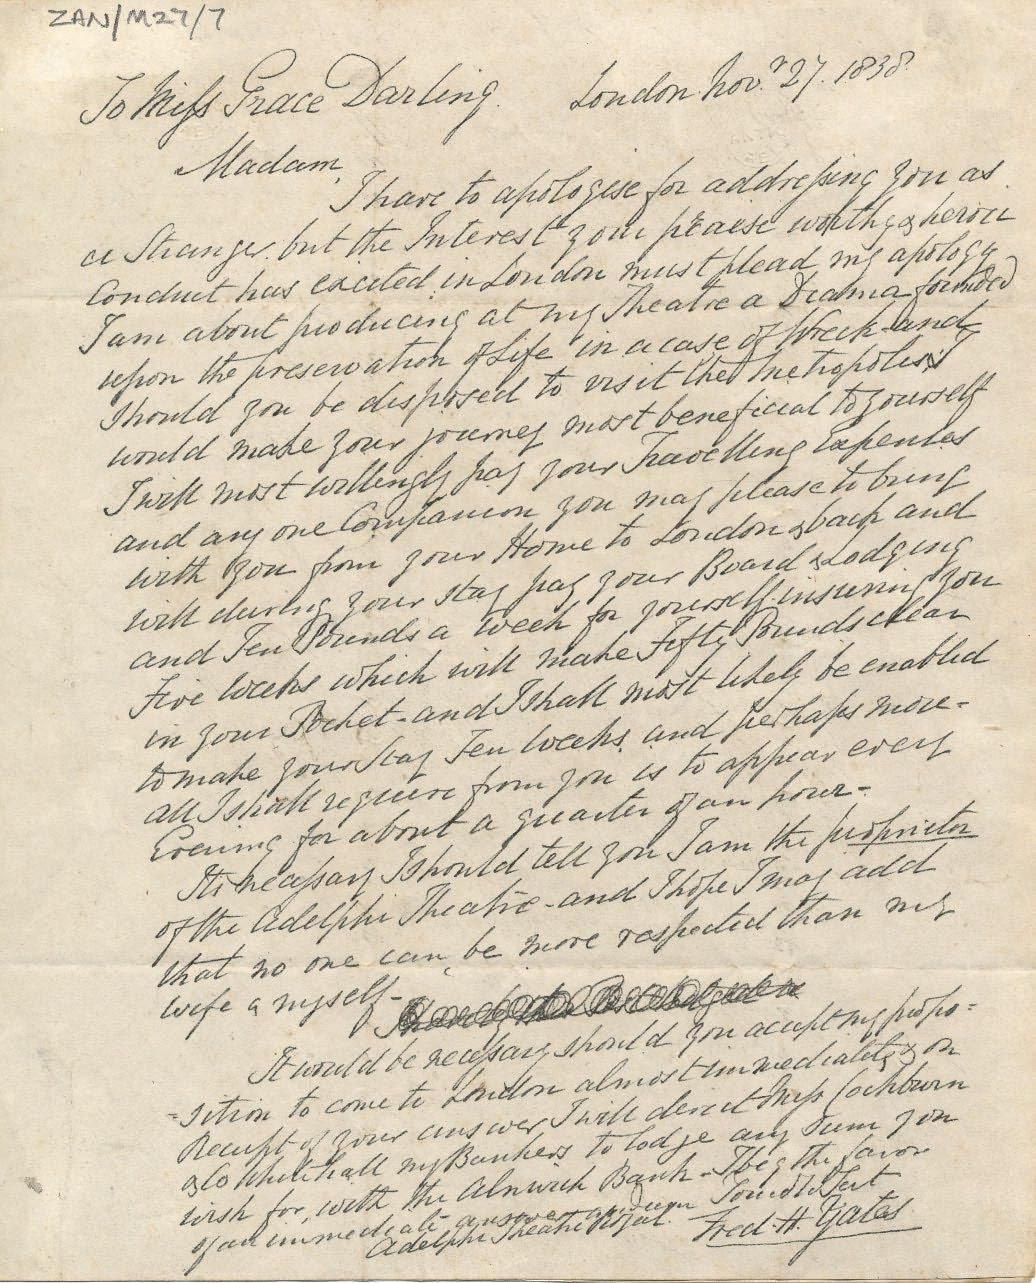 ZAN/M27/7
To Miss Grace Darling. London Novr 27. 1838.
Madam,
I have to apologise for addressing you as
a Stranger. but the Interest your praise worthy & heroic
Conduct has excited in London must plead my apology
I am about producing at my Theatre a Drama founded
upon the preservation of Life in a case of Wreck and
Should you be disposed to visit the Metropolis I
would make your journey most beneficial to yourself
I will most willingly pay your Travelling Expences
and any one Companion you may please to bring
with you from your Home to London & back and
will during your stay pay your Board & Lodging
and Ten Pounds a week for yourself insuring you
Five weeks which will make Fifty Pounds clear
in your Pocket - and I shall most likely be enabled
to make your stay Ten weeks and perhaps more -
all I shall require from you is to appear every
Evening for about a quarter of an hour -
Its necessary I should tell you I am the proprietor
of the Adelphi Theatre - and I hope I may add
that no one can be more respected than my
wife & myself -
It would be necessary should you accept my propo=
=sition to come to London almost immediately & on
Receipt of your answer I will direct Messrs Cockburn
& Co Whitehall my Bankers to lodge any Sum you
wish for, with the Alnwick Bank - I beg the favor
of an immediate answer and
Adelphi Theatre Royal. Fred. H. Yates